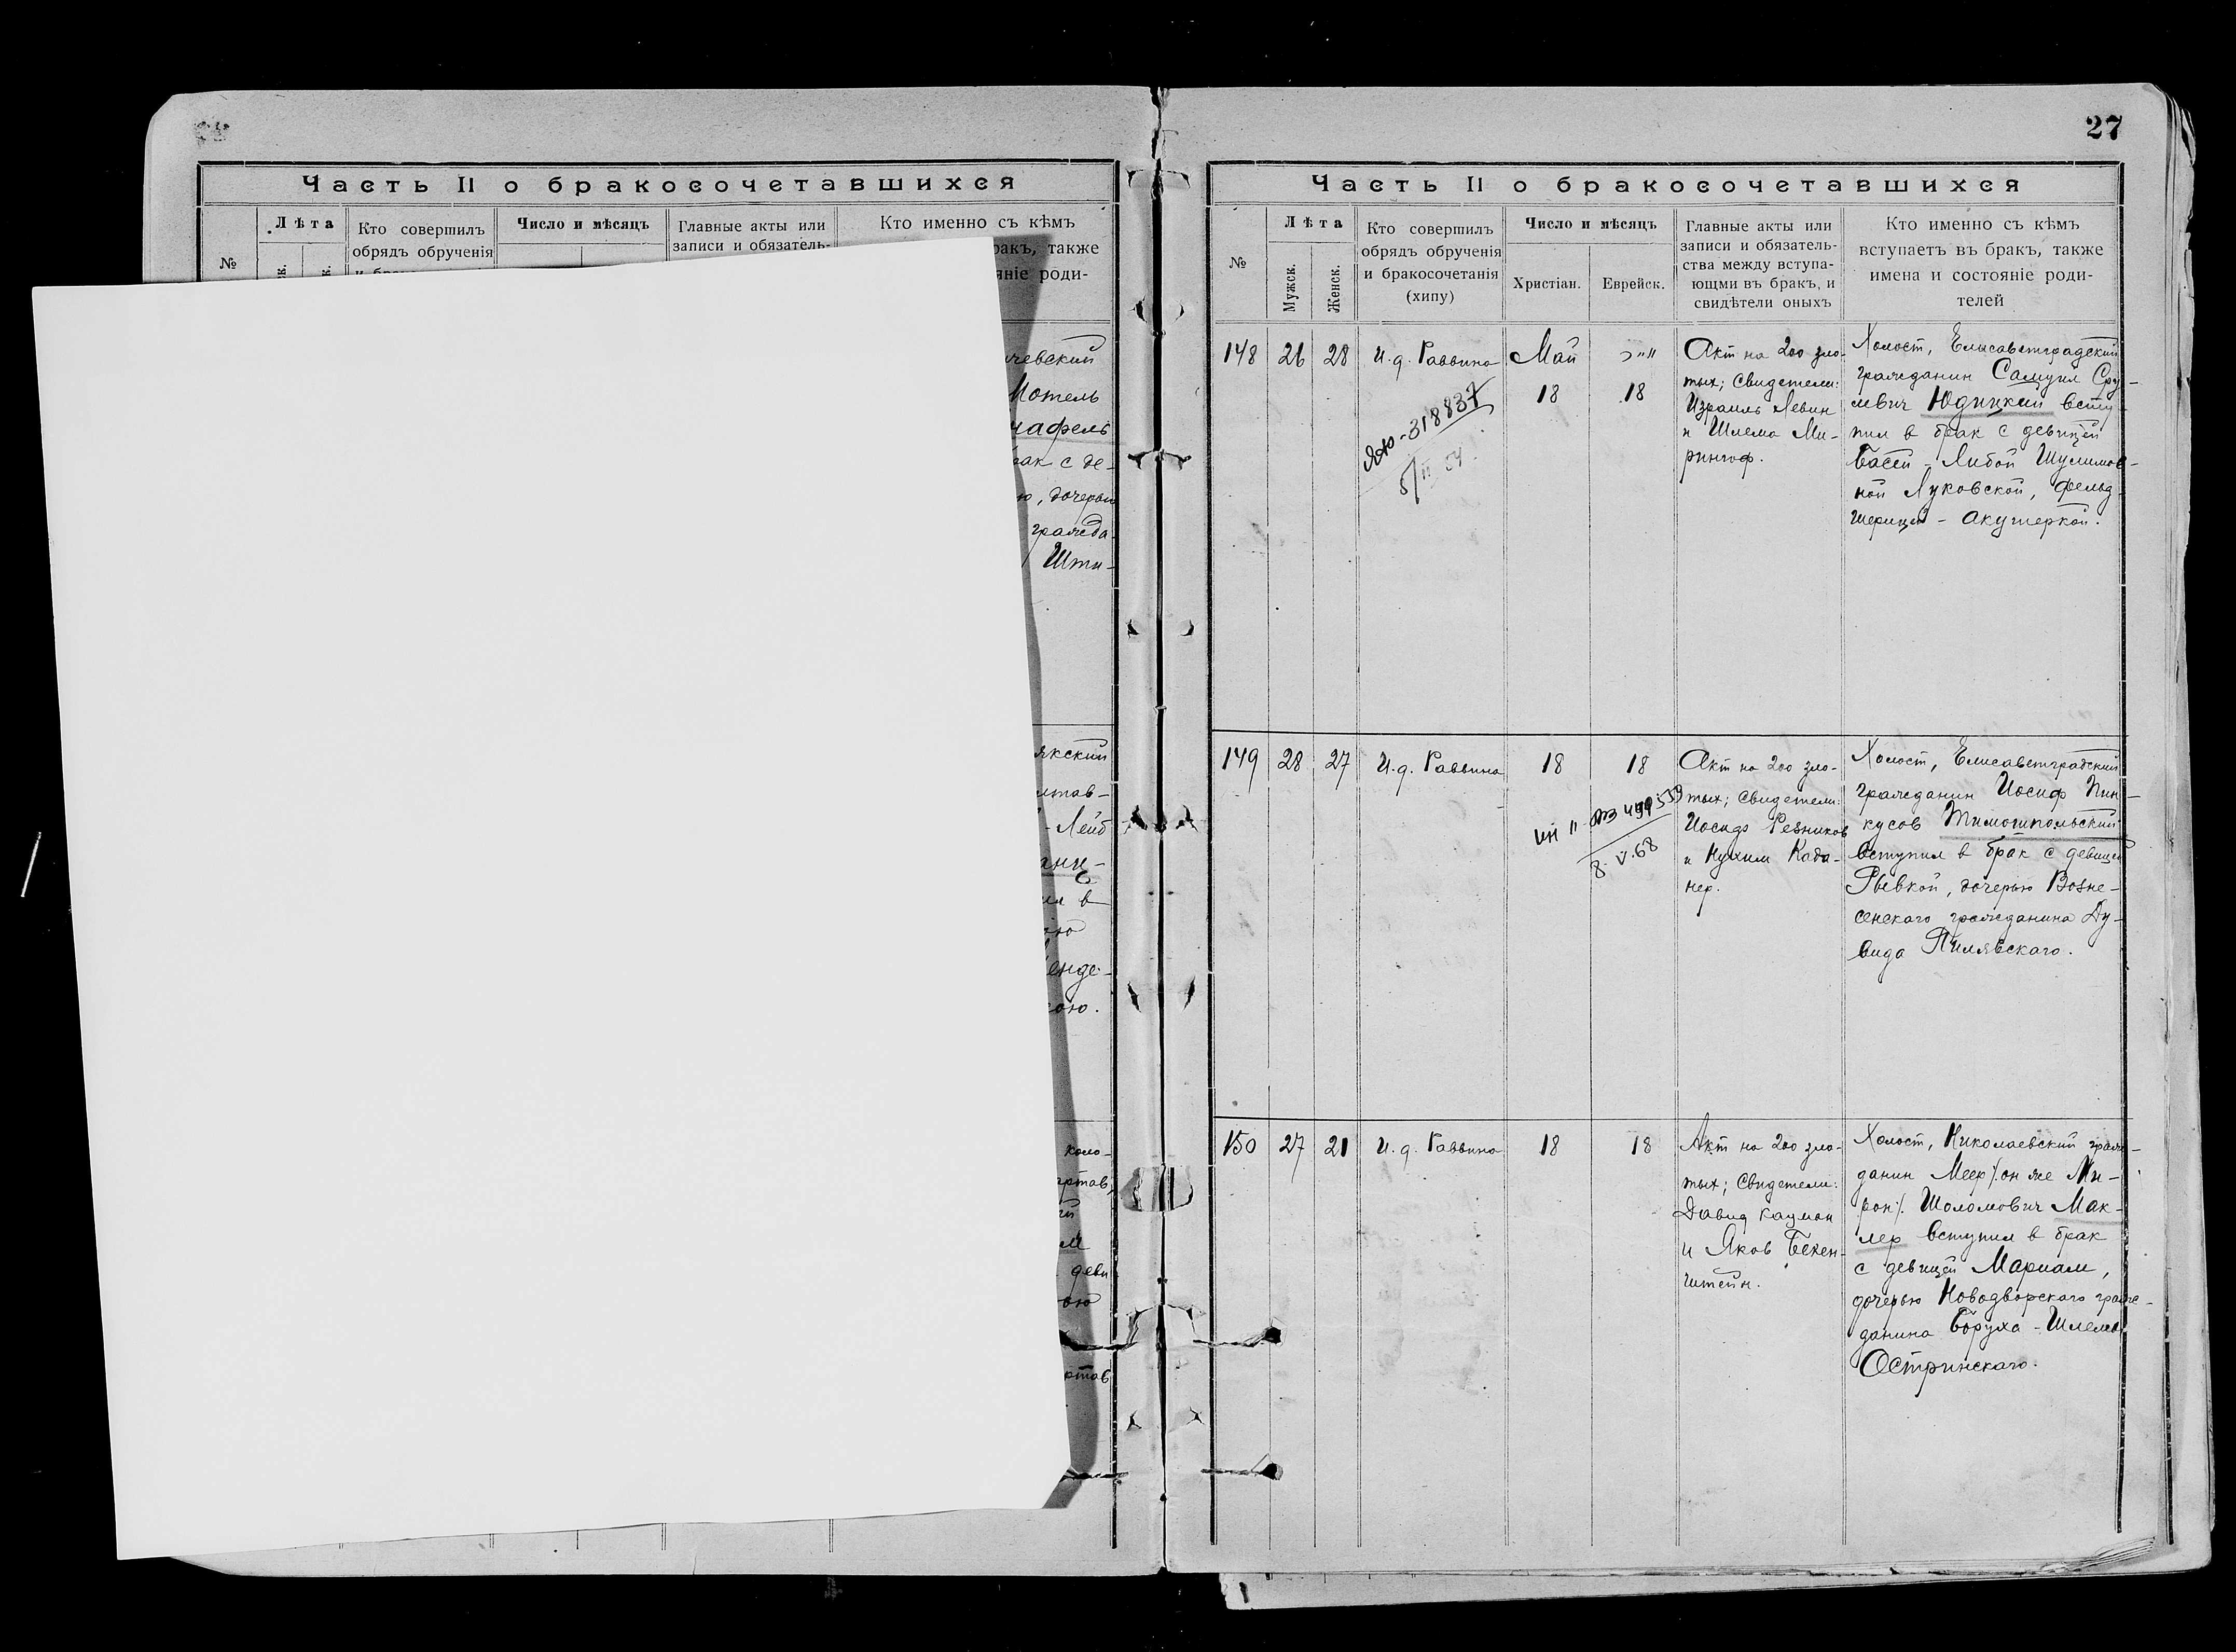 Часть II о бракосочетавшихся
№
Лѣта
Кто совершилъ
обрядъ обрученія
Число и мѣсяцъ
Главные акты или
записи и обязатель-
Кто именно съ кѣмъ
ракъ, также
яніе роди-
чевский
Мотель
нафель
рак с де-
ю, дочерью
гражда-
Шти-
якский
лтав-
- Лейб
анц-
ил в
енде-
сою.
коло-
артав,
деви
27
Часть II о бракосочетавшихся
№
Лѣта
Мужск.
Женск.
Кто совершилъ
обрядъ обрученія
и бракосочетанія
(хипу)
Число и мѣсяцъ
Христіан.
Еврейск.
Главные акты или
записи и обязатель-
ства между вступа-
ющми въ бракъ, и
свидѣтели оныхъ
Кто именно съ кѣмъ
вступаетъ въ бракъ, также
имена и состояніе роди-
телей
148
26
28
И.д. Раввина
ЯЮ-318837
5/II 54.
Май
18
18
Акт на 200 зло-
тых; Свидетели:
Израиль Левин
и Шлема Ми-
рингоф.
Холост, Елисаветградский
гражданин Самуил Сру-
левич Юдицкий всту-
пил в брак с девицей
Басей-Либой Шулимов-
ной Луковской, фельд-
шерицей-акушеркой.
149
28
27
И.д. Раввина
18
18
499539
8.V.68
Акт на 200 зло-
тых; Свидетели:
Иосиф Резников
и Нухим Када-
нер.
Холост, Елисаветградский
гражданин Иосиф Пин-
кусов Тимошпольский
вступил в брак с девицей
Рывкой, дочерью Возне-
сенскаго гражданина Ду-
вида Пилявскаго.
150
27
21
И.д. Раввина
18
18
Акт на 200 зло-
тых; Свидетели:
Давид Кацман
и Яков Бекен-
штейн.
Холост, Николаевский граж-
данин Меер /.он же Ми-
рон/. Шоломович Мак-
лер вступил в брак
с девицей Мариам,
дочерью Новодворскаго граж-
данина Боруха-Шлема
Остринскаго.